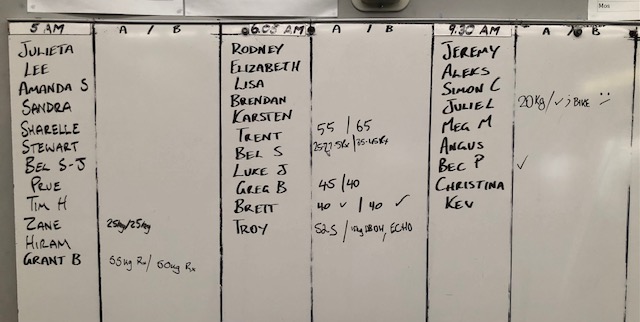 5 AM A / B
JULIETA
LEE
AMANDA S
SANDRA
SHARELLE
STEWART
BEL S-J
PRUE
TIM H
ZANE 25kg/25kg
HIRAM
GRANT B 55kg Rx / 50kg Rx
6.03 AM A / B
RODNEY
ELIZABETH
LISA
BRENDAN
KARSTEN
TRENT 55 / 65
BEL S
LUKE J
GREG B 45/40
BRETT 40 ✓ / 40 ✓
TROY 52.5 / DBOH, ECHO
9.30 AM A / B
JEREMY
ALEKS
SIMON C
JULIE L 20kg / ✓ ; BIKE :)
MEG M
ANGUS
BEC P ✓
CHRISTINA
KEV
Mos